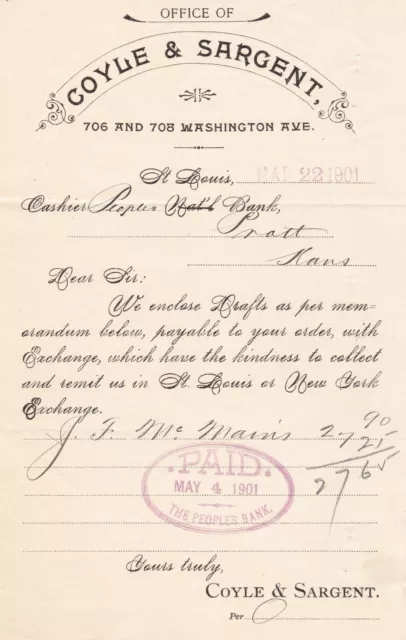 OFFICE OF
COYLE & SARGENT,
706 AND 708 WASHINGTON AVE.
St Louis, MAR 22 1901
Cashier Peoples Nat'l Bank,
Pratt
Kans
Dear Sir:
We enclose Drafts as per mem=
orandum below, payable to your order, with
Exchange, which have the kindness to collect
and remit us in St. Louis or New York
Exchange.
J. F. Mc Mains 27 90
25
27 65
PAID.
MAY 4 1901
THE PEOPLES BANK.
Yours truly,
COYLE & SARGENT.
Per